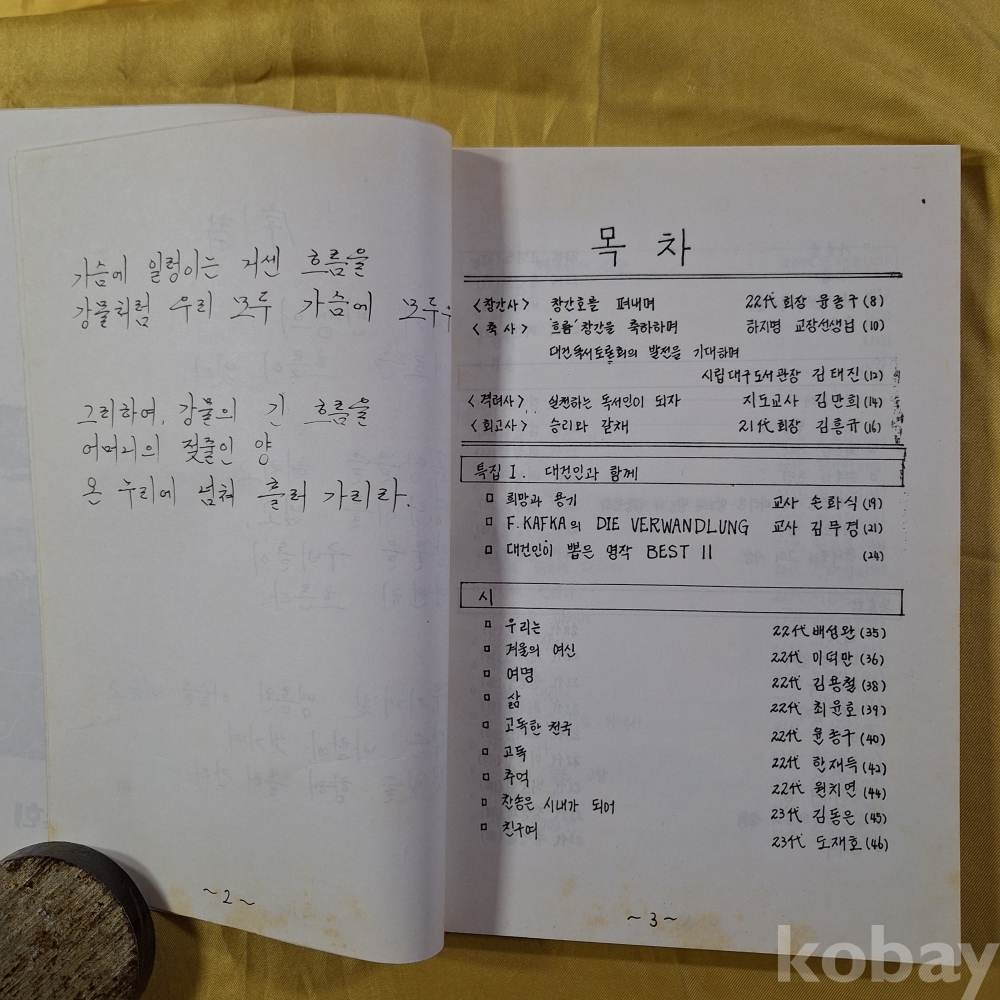 가슴에 일렁이는 거센 흐름을
강물처럼 우리 모두 가슴에 모두
그리하여, 강물의 긴 흐름을
어머니의 젖줄인 양
온 누리에 넘쳐 흘러 가리라.
~2~
목 차
<창간사> 창간호를 펴내며 22代 회장 윤종구 (8)
<축 사> '흐름' 창간을 축하하며 하지명 교장선생님 (10)
대건독서토론회의 발전을 기대하며
시립대구도서관장 김태진 (12)
<격려사> 실천하는 독서인이 되자 지도교사 김만희 (14)
<회고사> 승리와 갈채 21代 회장 김흥규 (16)
특집 I. 대건인과 함께
□ 희망과 용기 교사 손화식 (19)
□ F. KAFKA의 DIE VERWANDLUNG 교사 김무경 (21)
□ 대건인이 뽑은 명작 BEST 11 (24)
시
□ 우리는 22代 배성완 (35)
□ 겨울의 여신 22代 이덕만 (36)
□ 여명 22代 김용철 (38)
□ 삶 22代 최윤호 (39)
□ 고독한 천국 22代 윤종구 (40)
□ 고독 22代 한재득 (42)
□ 추억 22代 원치연 (44)
□ 찬송은 시내가 되어 23代 김동은 (45)
□ 친구여 23代 도재호 (46)
~3~
kobay